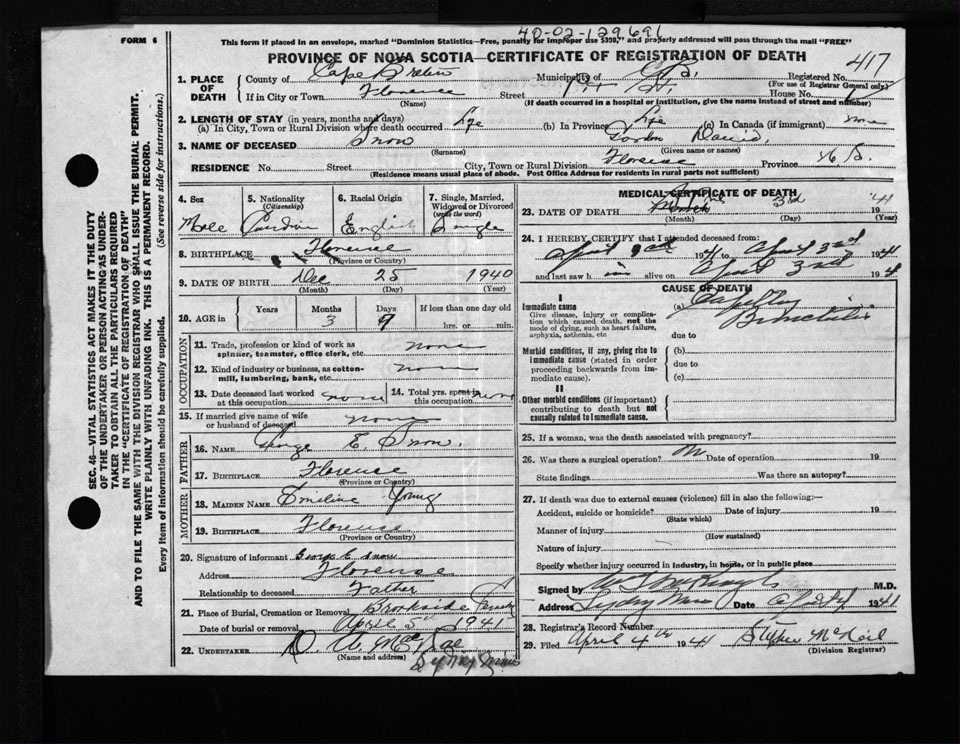 40-02-129691
FORM 6
This form if placed in an envelope, marked "Dominion Statistics—Free, penalty for improper use $300," and properly addressed will pass through the mail "FREE"
PROVINCE OF NOVA SCOTIA—CERTIFICATE OF REGISTRATION OF DEATH
417
1. PLACE OF DEATH
County of Cape Breton Municipality of C.B. Registered No.
(For use of Registrar General only)
If in City or Town Florence Street House No.
(Name) (If death occurred in a hospital or institution, give the name instead of street and number)
2. LENGTH OF STAY (in years, months and days)
(a) In City, Town or Rural Division where death occurred Life (b) In Province Life (c) In Canada (if immigrant) none
3. NAME OF DECEASED Snow Gordon David
(Surname) (Given name or names)
RESIDENCE No. Street City, Town or Rural Division Florence Province N.S.
(Residence means usual place of abode. Post Office Address for residents in rural parts not sufficient)
4. Sex Male
5. Nationality (Citizenship) Canadian
6. Racial Origin English
7. Single, Married, Widowed or Divorced (write the word) Single
8. BIRTHPLACE Florence
(Province or Country)
9. DATE OF BIRTH Dec 25 1940
(Month) (Day) (Year)
10. AGE in Years Months 3 Days 9 If less than one day old hrs. or min.
OCCUPATION
11. Trade, profession or kind of work as spinner, teamster, office clerk, etc. none
12. Kind of industry or business, as cotton-mill, lumbering, bank, etc. none
13. Date deceased last worked at this occupation none 14. Total yrs. spent in this occupation none
15. If married give name of wife or husband of deceased none
FATHER
16. NAME George E. Snow.
17. BIRTHPLACE Florence
(Province or Country)
MOTHER
18. MAIDEN NAME Emeline Young
19. BIRTHPLACE Florence
(Province or Country)
20. Signature of informant George E. Snow
Address Florence
Relationship to deceased Father
21. Place of Burial, Cremation or Removal Brookside
Date of burial or removal April 5th 1941
22. UNDERTAKER D. A. MacRae
(Name and address) Sydney Mines
MEDICAL CERTIFICATE OF DEATH
23. DATE OF DEATH 3rd '41
(Month) (Day) (Year)
24. I HEREBY CERTIFY that I attended deceased from:
April 1941 to April 3rd 1941
and last saw him alive on April 3rd 194
CAUSE OF DEATH
I
Immediate cause
Give disease, injury or complication which caused death, not the mode of dying, such as heart failure, asphyxia, asthenia, etc
(a) Capillary Bronchitis
due to
Morbid conditions, if any, giving rise to immediate cause (stated in order proceeding backwards from immediate cause).
(b)
due to
(c)
II
Other morbid conditions (if important) contributing to death but not causally related to immediate cause.
25. If a woman, was the death associated with pregnancy?
26. Was there a surgical operation? Date of operation 19
State findings Was there an autopsy?
27. If death was due to external causes (violence) fill in also the following:—
Accident, suicide or homicide? Date of injury 19
(State which)
Manner of injury
(How sustained)
Nature of injury
Specify whether injury occurred in industry, in home, or in public place
Signed by M.D.
Address Sydney Mines Date 1941
28. Registrar's Record Number
29. Filed April 4th 1941 Stephen McNeil
(Division Registrar)
SEC. 46—VITAL STATISTICS ACT MAKES IT THE DUTY
OF THE UNDERTAKER OR PERSON ACTING AS UNDER-
TAKER TO OBTAIN ALL THE PARTICULARS REQUIRED
IN THE "CERTIFICATE OF REGISTRATION OF DEATH"
AND TO FILE THE SAME WITH THE DIVISION REGISTRAR WHO SHALL ISSUE THE BURIAL PERMIT.
WRITE PLAINLY WITH UNFADING INK. THIS IS A PERMANENT RECORD.
Every item of information should be carefully supplied. (See reverse side for instructions.)